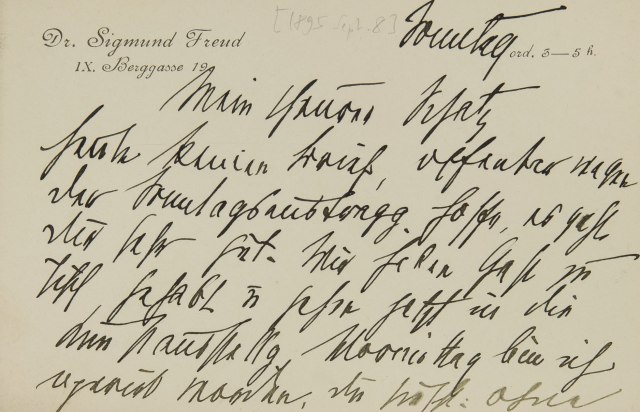 [1895 Sept. 8]
Dr. Sigmund Freud
IX. Berggasse 19.
Sonntag
ord. 3—5 h.
Mein theurer Schatz
heute keinen Brief, offenbar wegen
der Sonntagsaustragg. Hoffe, es geht
dir sehr gut. Wir haben Gast zu
Tisch gehabt u gehen jetzt in die
bin ich
worden,